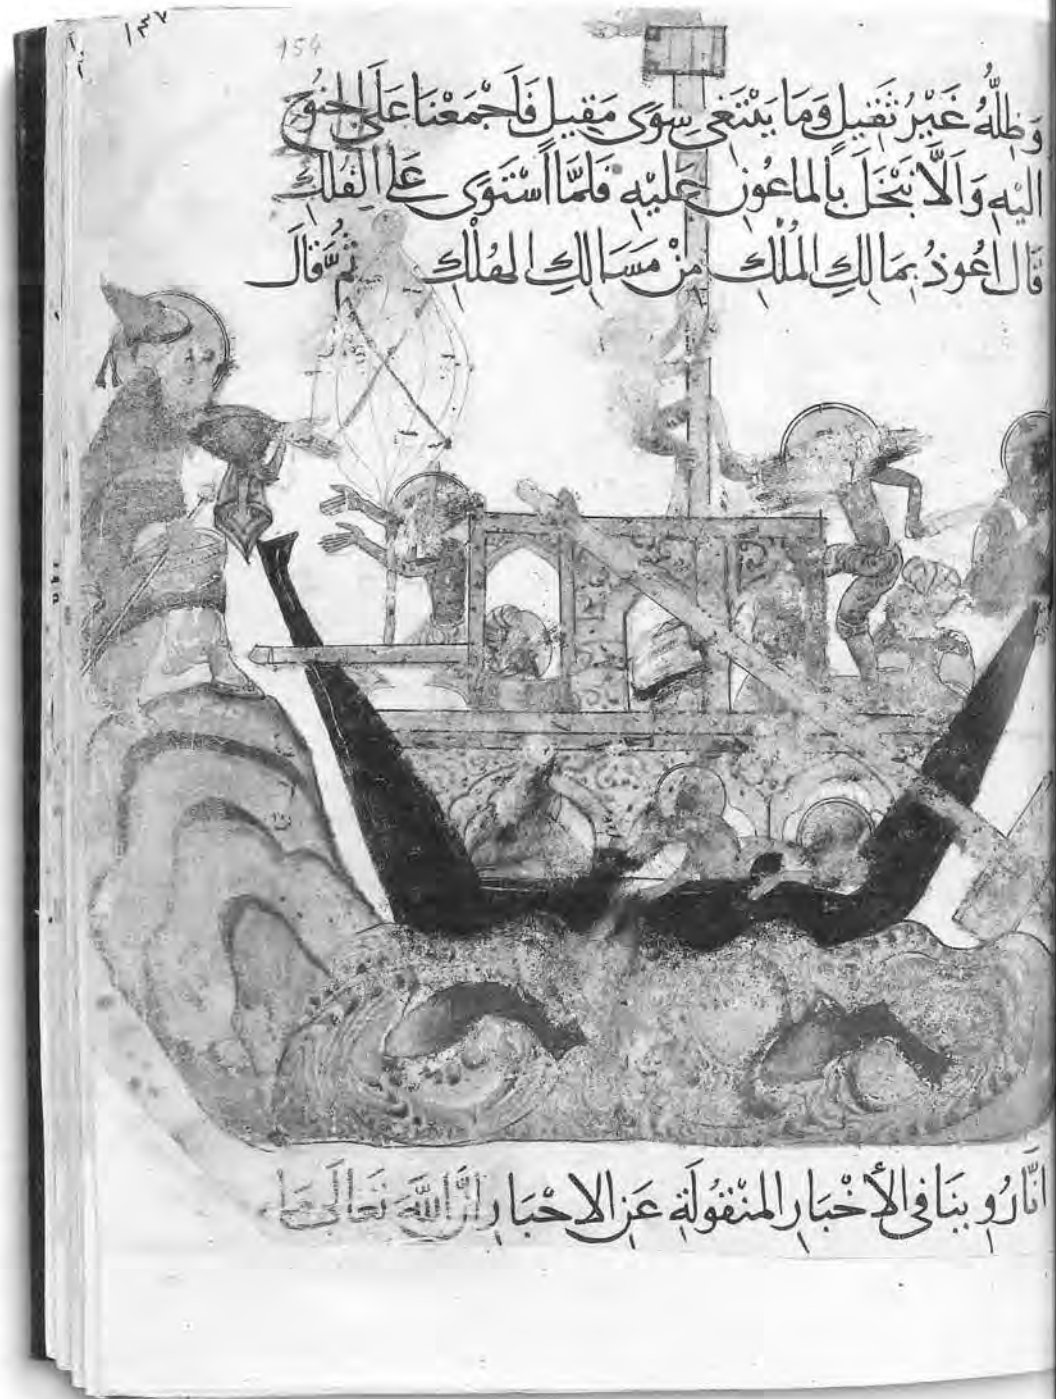 ١٣٧
154
وَظِلُّهُ غَيْرُ ثَقِيلٍ وَمَا يَبْتَغِي سِوَى مَقِيلٍ فَاَجْمَعْنَا عَلَى الجُنُوحِ
اليْهِ وَاَلَّا نَبْخَلَ بِالماعُونِ عَلَيْهِ فَلمَّا اسْتَوَى عَلَى الفُلْكِ
قَالَ اعُوذُ بِمَالِكِ المُلْكِ مِنْ مَسَالِكِ الهُلْكِ ثُمَّ قَالَ
انَّا رُوِينَا فِى الأَخْبَارِ المنْقُولَةِ عَنِ الاحْبَارِ انَّ اللَّهَ تَعَالَى مَا